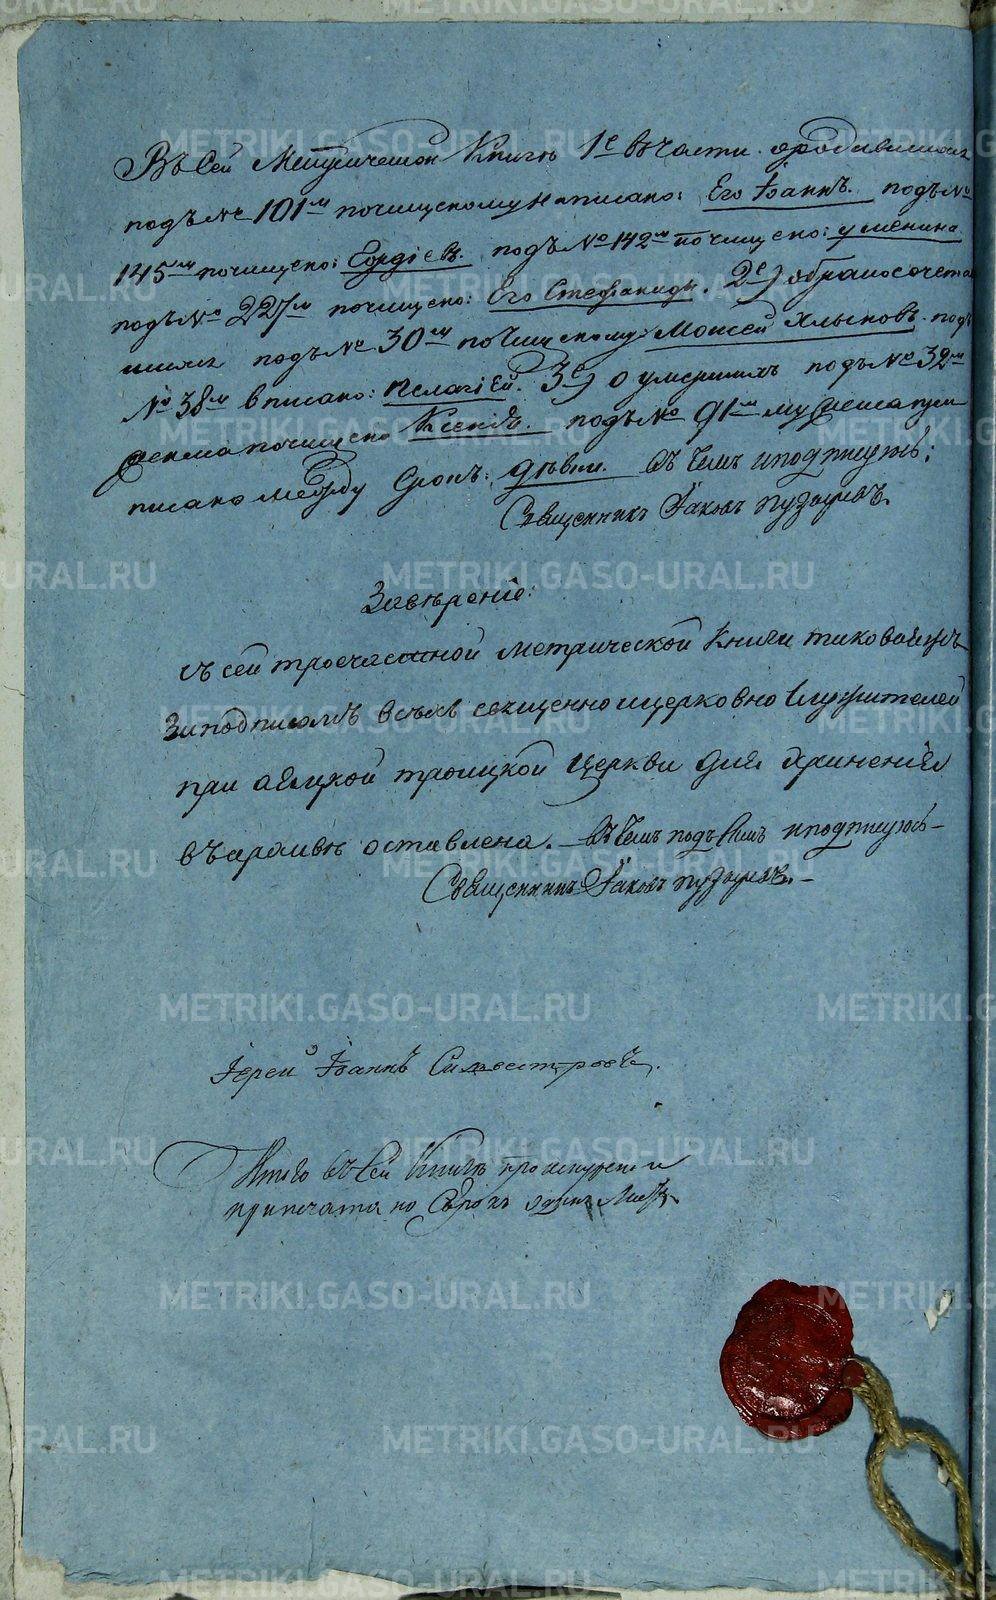 Въ сей Метрической Книгѣ 1е въ части о родившихся
подъ № 101мъ почищеному написано: Его Іоаннъ. подъ №
145мъ почищено: Гордіевъ. подъ № 142мъ почищено: Уменина
подъ № 227м почищено: Его Стефаниды. 2е) о бракосочета
шихся подъ № 30мъ почищеному Моисей Хлыновъ. подъ
№ 38м вписано: Пелагіей. 3е) о умершихъ подъ № 32мъ
почищено Ксенія. подъ № 91мъ
писано между строкъ: дѣвки. Въ чемъ и подпишусь;
Священникъ Іаковъ Пузыревъ.
Завѣреніе:
съ сей троечастной метрической Книги таковаяжъ
За подписомъ всѣхъ священно и церковно служителей
при Троицкой Церкви для храненія
въ архивѣ оставлена. Въ чемъ подъ симъ и подпишусь
Священникъ Іаковъ Пузыревъ.
Іерей Іоаннъ Силвестровъ.
Итого въ сей Книгѣ прошнуровано и
припечатано Сорокъ одинъ Листъ
METRIKI.GASO-URAL.RU